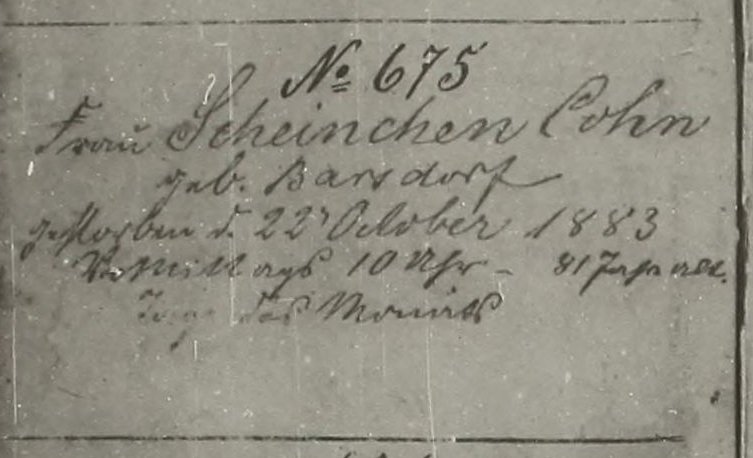 No 675
Frau Scheinchen Cohn
geb. Barsdorf
gestorben d. 22t October 1883
Vormittags 10 Uhr - 81 Jahr alt.
des Monats